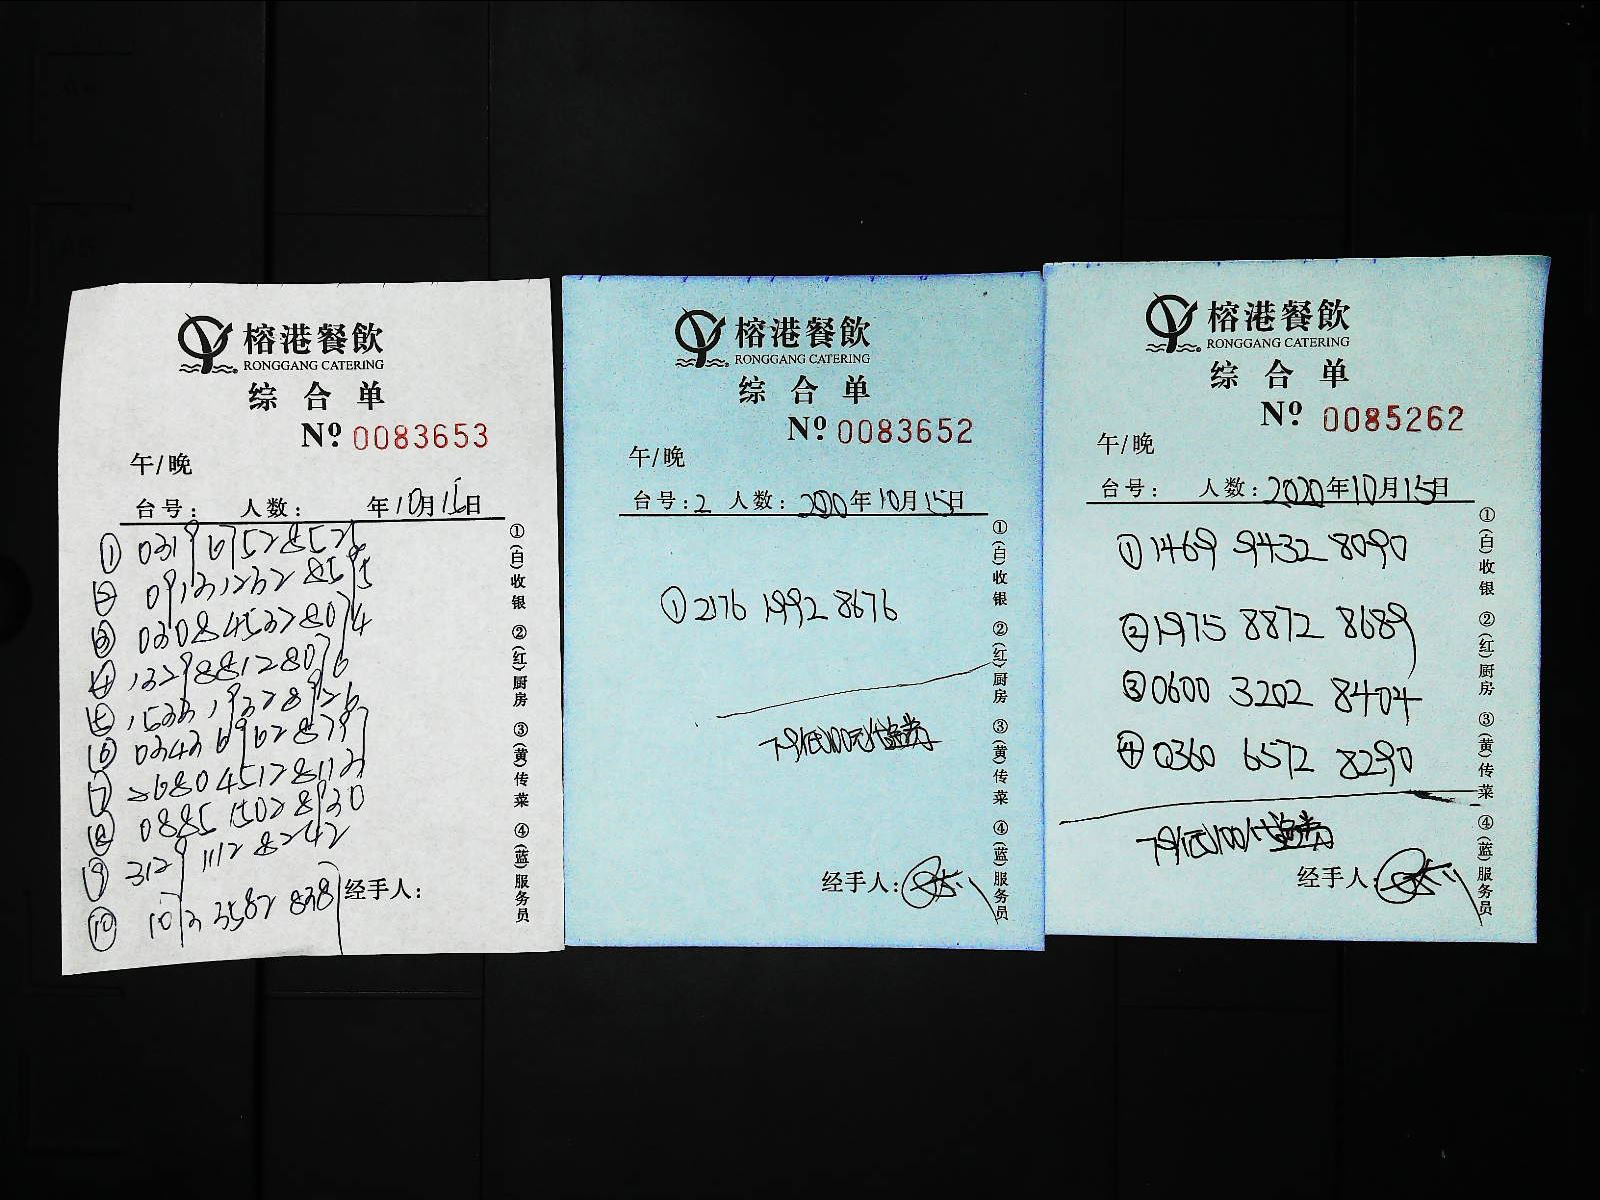 榕港餐飲
RONGGANG CATERING
综合单
Nº 0083653
午/晚
台号： 人数： 年10月15日
① 0319 6752 8526
② 0913 1232 8595
③ 0308 4532 8074
④ 1329 8812 8076
⑤ 1533 1932 8926
⑥ 0343 6962 8799
⑦ 2680 4512 8113
⑧ 0885 1502 8930
⑨ 3129 1112 8242
⑩ 1013 3582 838
经手人：
①(白)收银 ②(红)厨房 ③(黄)传菜 ④(蓝)服务员
榕港餐飲
RONGGANG CATERING
综合单
Nº 0083652
午/晚
台号：2 人数： 2020年10月15日
① 2176 1992 8676
经手人：
①(白)收银 ②(红)厨房 ③(黄)传菜 ④(蓝)服务员
榕港餐飲
RONGGANG CATERING
综合单
Nº 0085262
午/晚
台号： 人数：2020年10月15日
① 1469 9432 8090
② 1975 8872 8689
③ 0600 3202 8404
④ 0360 6572 8290
经手人：
①(白)收银 ②(红)厨房 ③(黄)传菜 ④(蓝)服务员